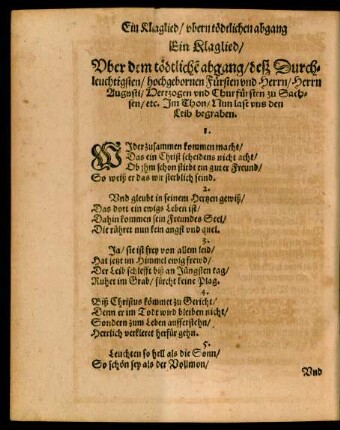 Ein Klaglied/ vbern tödtlichen abgang
Ein Klaglied/
Vber dem tödtlichē abgang/ deß Durch-
leuchtigsten/ hochgebornen Fürsten vnd Herrn/ Herrn
Augusti/ Hertzogen vnd Churfürsten zu Sach-
sen/ etc. Im Thon/ Nun last vns den
Leib begraben.
1.
WIder zusammen kommen macht/
Das ein Christ scheidens nicht acht/
Ob jhm schon stirbt ein guter Freund/
So weiß er das wir sterblich seind.
2.
Vnd gleubt in seinem Hertzen gewiß/
Das dort ein ewigs Leben ist/
Dahin kommen sein Freundes Seel/
Die rühret nun kein angst vnd quel.
3.
Ja/ sie ist frey von allem leid/
Hat jetzt im Himmel ewig frewd/
Der Leib schlefft biß an Jüngsten tag/
Ruhet im Grab/ fürcht keine Plag.
4.
Biß Christus kömmet zu Gericht/
Denn er im Todt wird bleiben nicht/
Sondern zum Leben aufferstehn/
Herrlich verkleret herfür gehn.
5.
Leuchten so hell als die Sonn/
So schön sey als der Vollmon/
Vnd